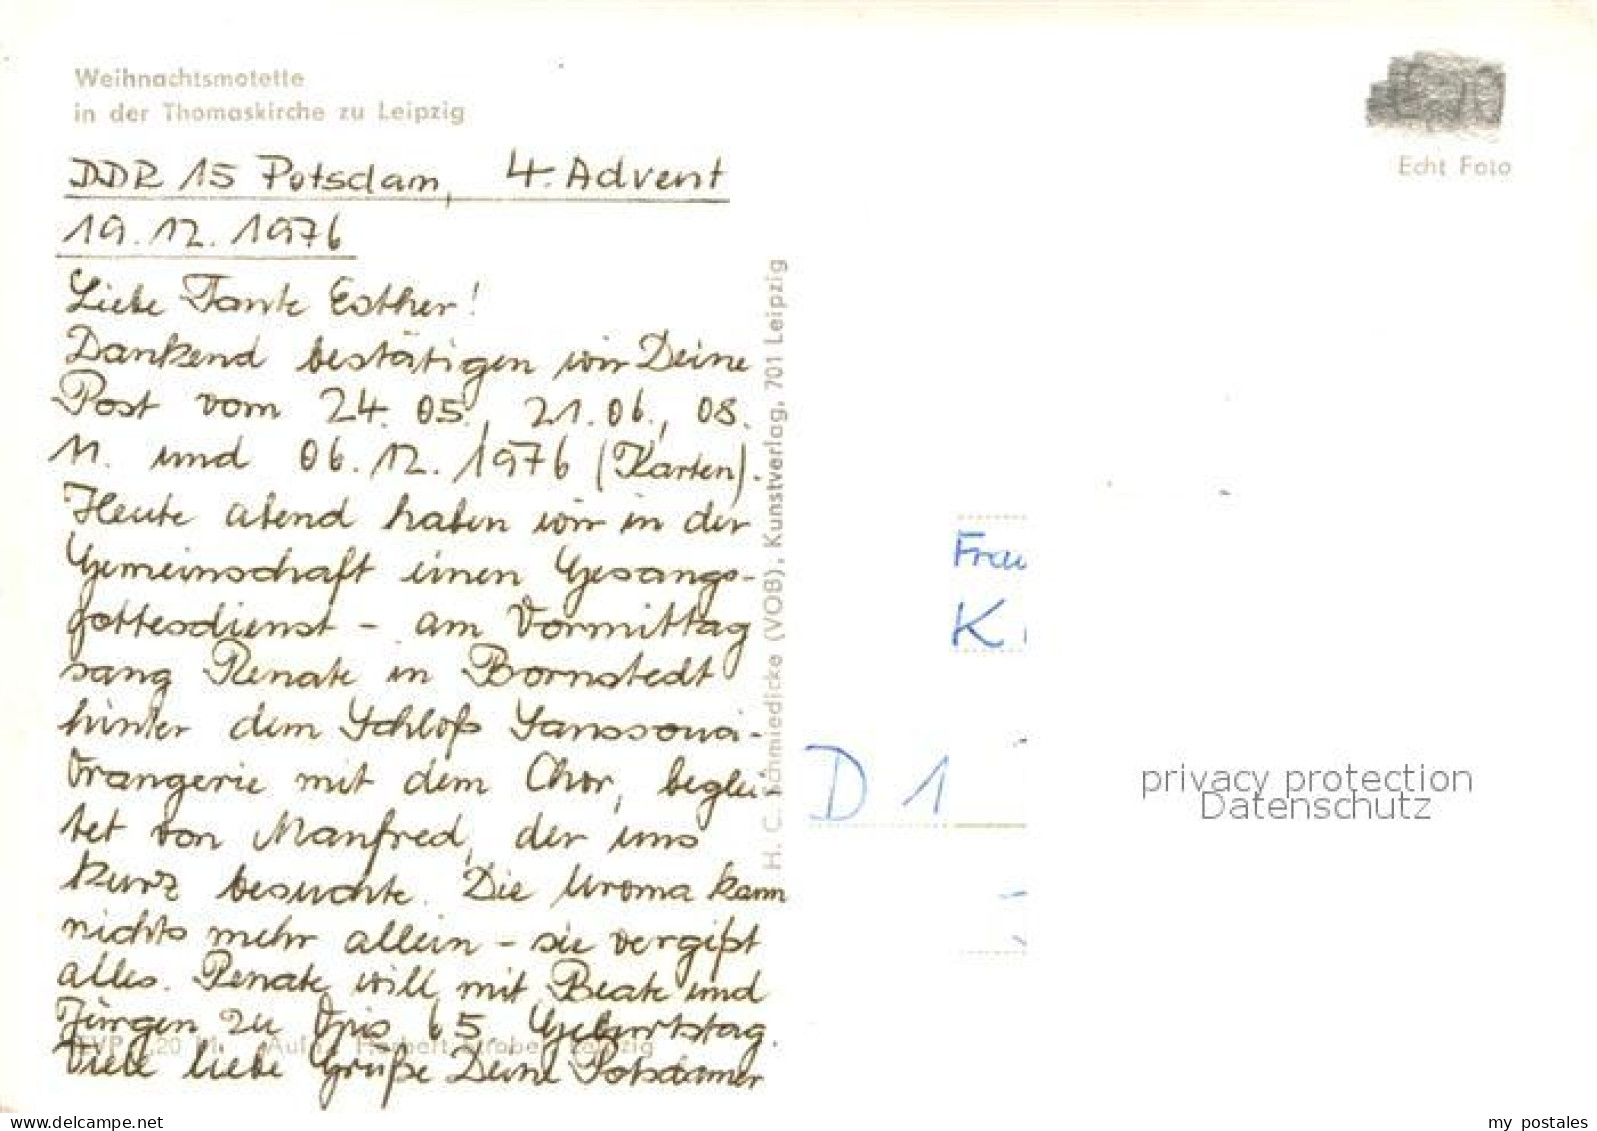 Weihnachtsmotette
in der Thomaskirche zu Leipzig
Echt Foto
DDR 15 Potsdam, 4. Advent
19.12.1976
Liebe Tante Esther!
Dankend bestätigen wir Deine
Post vom 24.05., 21.06., 08.
11. und 06.12.1976 (Karten).
Heute abend haben wir in der
Gemeinschaft einen Gesangs-
gottesdienst - am Vormittag
sang Renate in Bornstedt
hinter dem Schloß Sanssouci-
Orangerie mit dem Chor, beglei
tet von Manfred, der uns
kurz besuchte. Die Uroma kann
nichts mehr allein - sie vergißt
alles. Renate will mit Beate und
Jürgen zu Opis 65. Geburtstag.
Viele liebe Grüße Deine Potsdamer
H. C. Schmiedicke (VOB), Kunstverlag, 701 Leipzig
Frau
K
D 1
privacy protection
Datenschutz
my postales